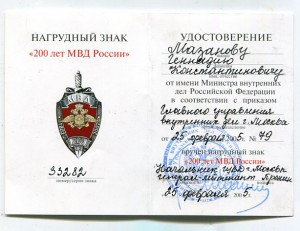 НАГРУДНЫЙ ЗНАК
«200 лет МВД России»
33282
номер/серия знака
УДОСТОВЕРЕНИЕ
Мазанову
Геннадию
Константиновичу
от имени Министра внутренних
дел Российской Федерации
в соответствии с приказом
Главного управления
внутренних дел г. Москвы
25 февраля 5 № 79
вручен нагрудный знак
«200 лет МВД России»
Начальник ГУВД г. Москвы
генерал-лейтенант
25 февраля